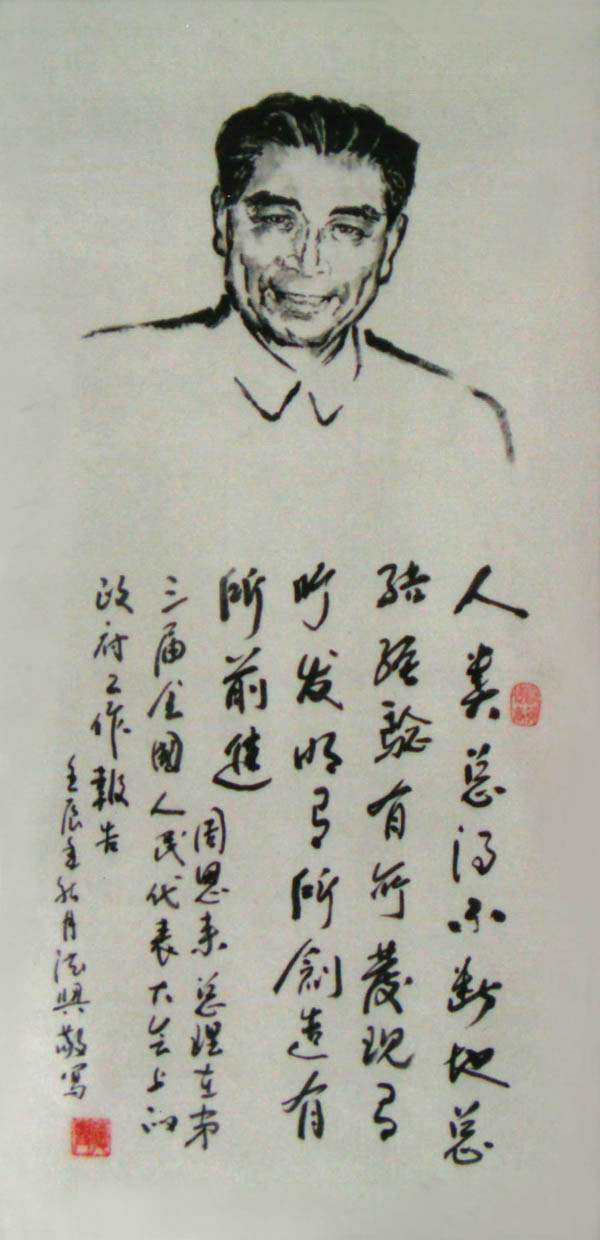 人类总得不断地总
结经验有所發现有
所发明有所創造有
所前進
周恩来总理在第
三届全國人民代表大会上的
政府工作報告
壬辰年秋月興敬寫